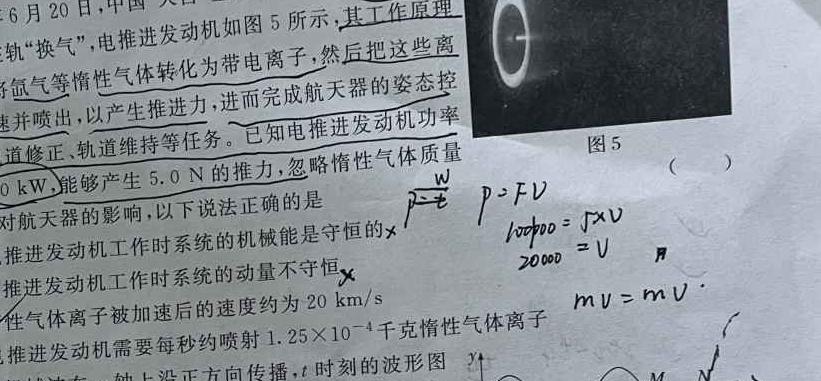 6月20日,中国
轨“换气”,电推进发动机如图5所示,其工作原理
氙气等惰性气体转化为带电离子,然后把这些离
速并喷出,以产生推进力,进而完成航天器的姿态控
道修正、轨道维持等任务。已知电推进发动机功率
0 kW,能够产生5.0 N的推力,忽略惰性气体质量
对航天器的影响,以下说法正确的是
( )
推进发动机工作时系统的机械能是守恒的×
推进发动机工作时系统的动量不守恒×
性气体离子被加速后的速度约为20 km/s
推进发动机需要每秒约喷射1.25×10⁻⁴千克惰性气体离子
轴上沿正方向传播,t时刻的波形图
图5
P=W/t
P=FV
100000=5×V
20000=V
mV=mV
y
M
N